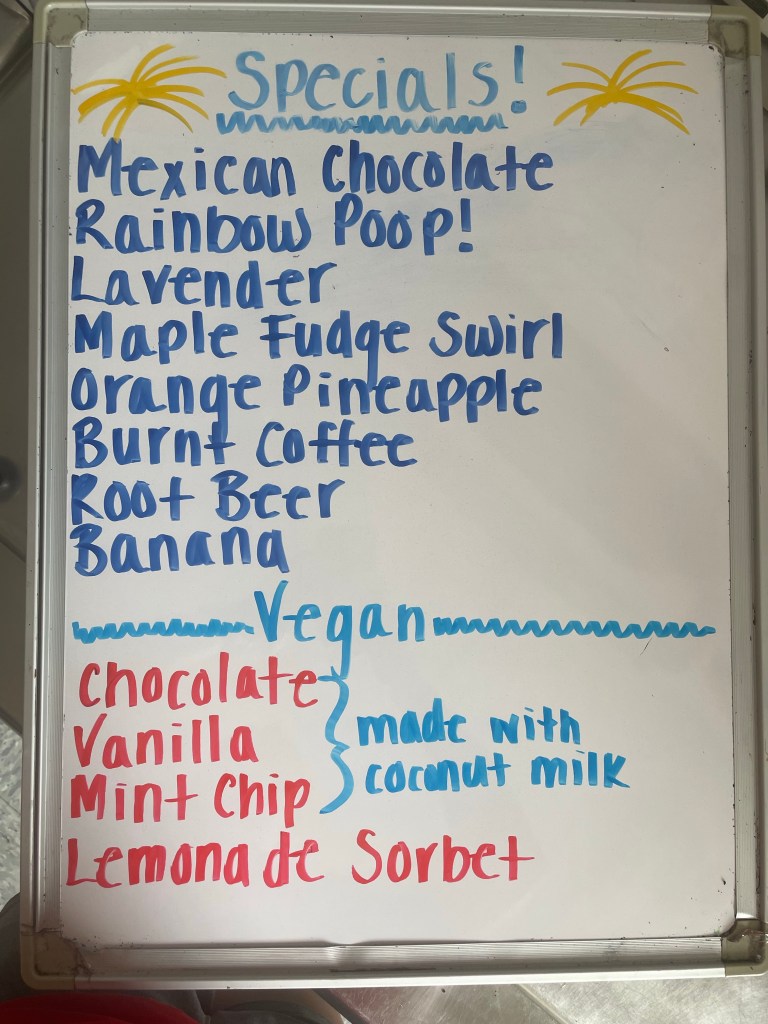 Specials!
Mexican Chocolate
Rainbow Poop!
Lavender
Maple Fudge Swirl
Orange Pineapple
Burnt Coffee
Root Beer
Banana
Vegan
Chocolate
Vanilla
Mint Chip
made with
coconut milk
Lemonade Sorbet